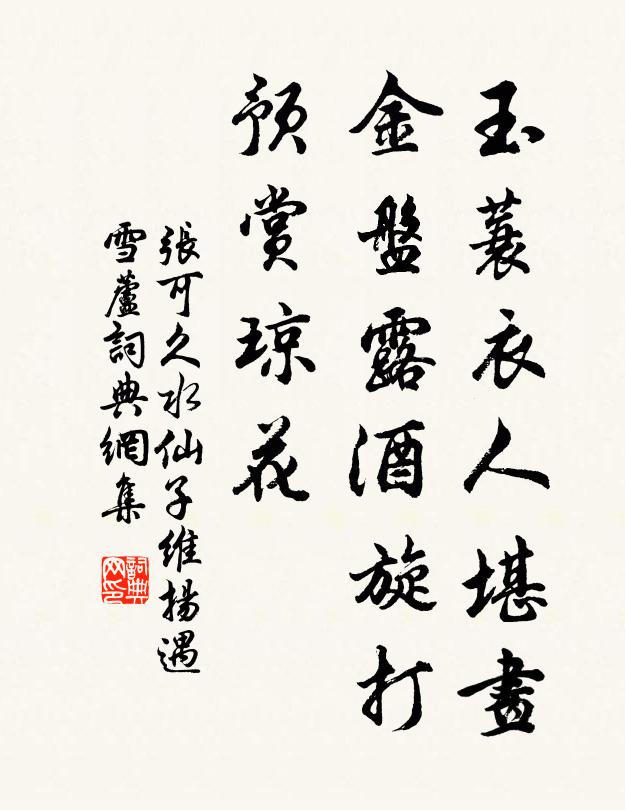 玉蓑衣人堪畫
金盤露酒旋打
預賞瓊花
張可久水仙子維揚遇
雪蘆詞典網集
詞典网印